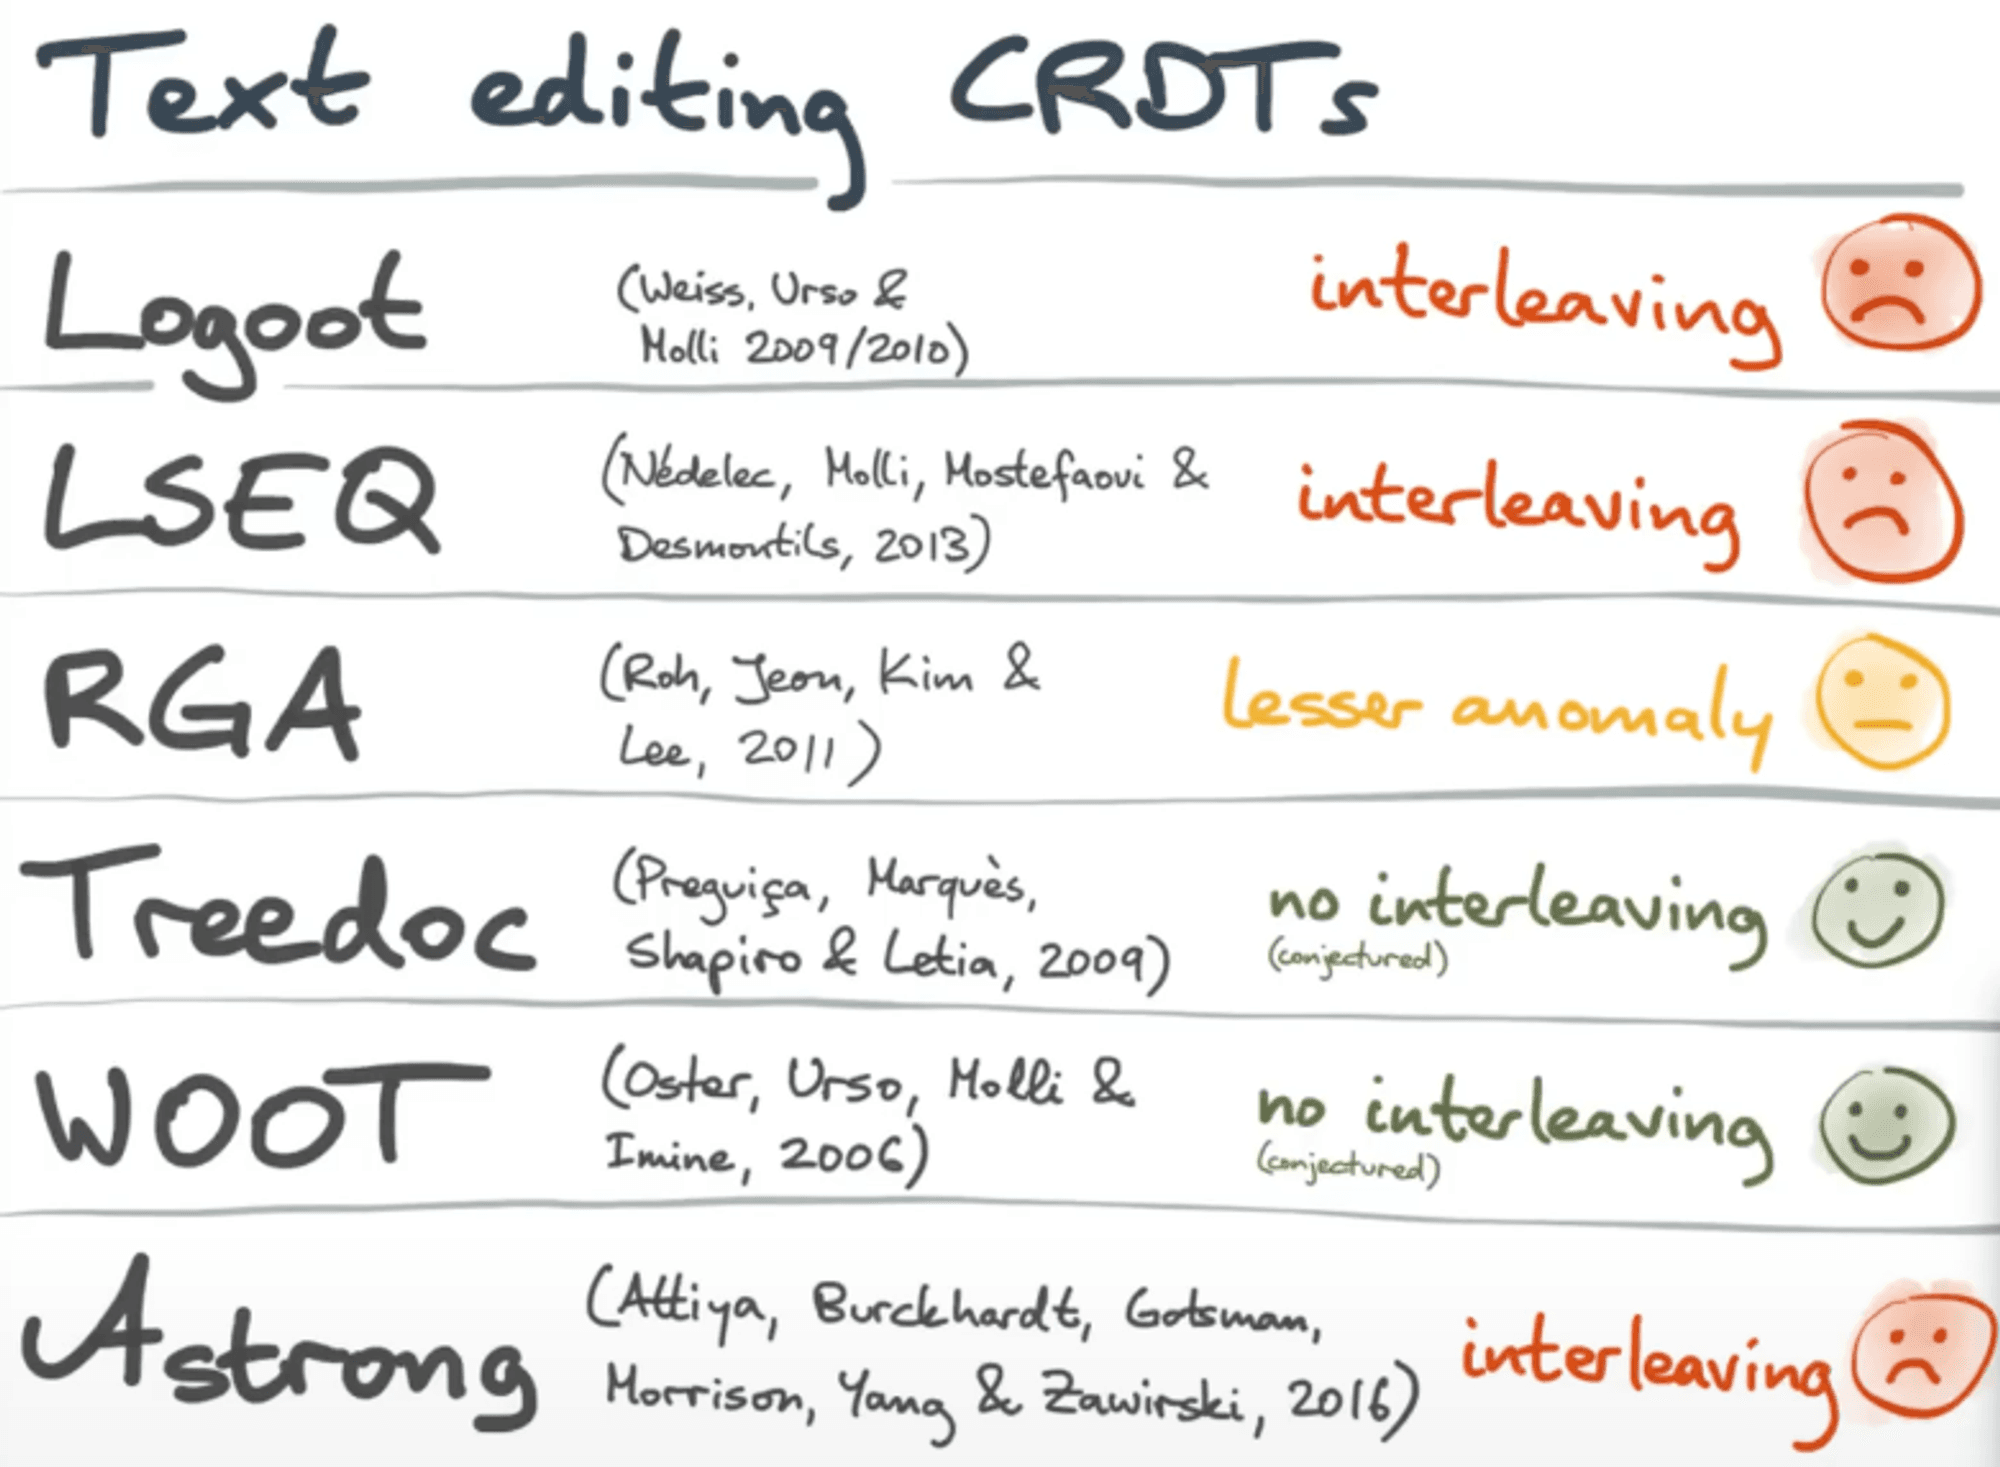 Text editing CRDTs
Logoot
(Weiss, Urso &
Molli 2009/2010)
interleaving
LSEQ
(Nédelec, Molli, Mostefaoui &
Desmontils, 2013)
interleaving
RGA
(Roh, Jeon, Kim &
Lee, 2011)
lesser anomaly
Treedoc
(Preguiça, Marquès,
Shapiro & Letia, 2009)
no interleaving
(conjectured)
WOOT
(Oster, Urso, Molli &
Imine, 2006)
no interleaving
(conjectured)
Astrong
(Attiya, Burckhardt, Gotsman,
Morrison, Yang & Zawirski, 2016)
interleaving